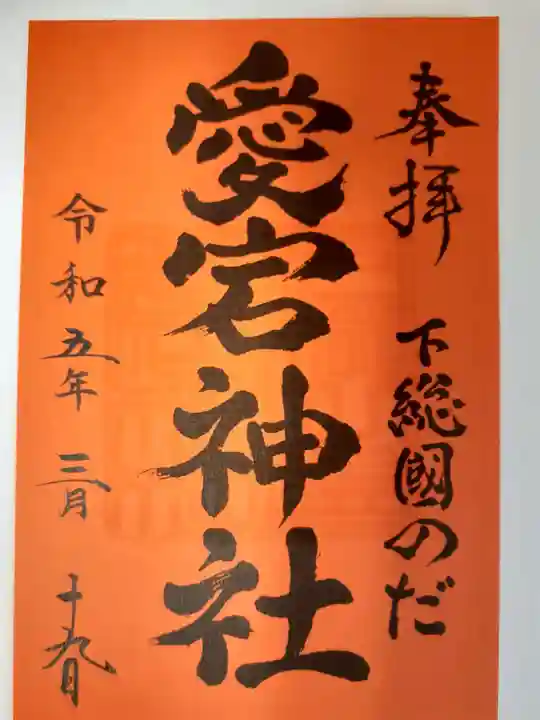 奉拝 下総國のだ
愛宕神社
令和五年 三月 十九日